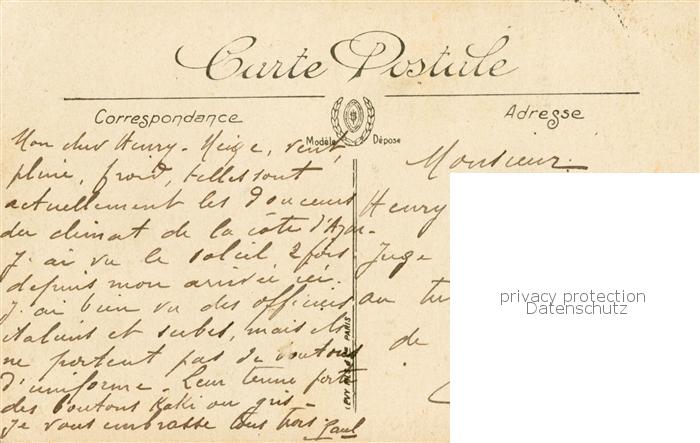 Carte Postale
Correspondance
Adresse
Modèle Déposé
Mon cher Henry - Neige, vent,
pluie, froid, telles sont
actuellement les douceurs
du climat de la côte d'Azur.
J'ai vu le soleil 2 fois
depuis mon arrivée ici.
J'ai bien vu des officiers
italiens et serbes, mais ils
ne portent pas de boutons
d'uniforme - Leur tenue porte
des boutons kaki ou gris -
Je vous embrasse tous trois. Paul
Monsieur
Henry
Juge
au
de
LEVY FILS & Cie PARIS
privacy protection
Datenschutz